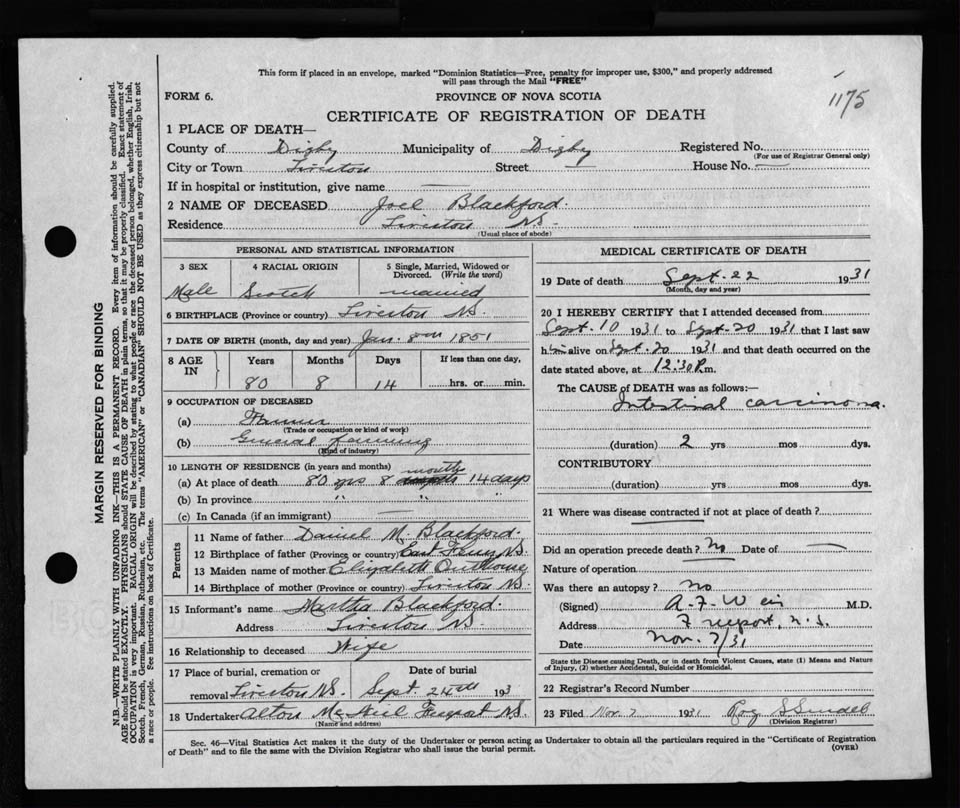 This form if placed in an envelope, marked "Dominion Statistics—Free, penalty for improper use, $300," and properly addressed
will pass through the Mail "FREE"
FORM 6. PROVINCE OF NOVA SCOTIA 1175
CERTIFICATE OF REGISTRATION OF DEATH
1 PLACE OF DEATH—
County of Digby Municipality of Digby Registered No.
(For use of Registrar General only)
City or Town Tiverton Street — House No. —
If in hospital or institution, give name —
2 NAME OF DECEASED Joel Blackford.
Residence Tiverton NS.
(Usual place of abode)
PERSONAL AND STATISTICAL INFORMATION
3 SEX 4 RACIAL ORIGIN 5 Single, Married, Widowed or Divorced. (Write the word)
Male Scotch married
6 BIRTHPLACE (Province or country) Tiverton NS.
7 DATE OF BIRTH (month, day and year) Jan. 8th 1851
8 AGE IN Years Months Days If less than one day,
80 8 14 hrs. or min.
9 OCCUPATION OF DECEASED
(a) Farmer
(Trade or occupation or kind of work)
(b) General farming
(Kind of industry)
10 LENGTH OF RESIDENCE (in years and months)
(a) At place of death 80 yrs 8 months 14 days
(b) In province " " "
(c) In Canada (if an immigrant) —
Parents
11 Name of father Daniel M. Blackford.
12 Birthplace of father (Province or country) NS.
13 Maiden name of mother Elizabeth Outhouse
14 Birthplace of mother (Province or country) Tiverton NS.
15 Informant's name Martha Blackford.
Address Tiverton NS.
16 Relationship to deceased Wife
17 Place of burial, cremation or Date of burial
removal Tiverton NS. Sept. 24th 193
18 Undertaker Alton McNeil Freeport NS.
(Name and address)
MEDICAL CERTIFICATE OF DEATH
19 Date of death Sept. 22 1931
(Month, day and year)
20 I HEREBY CERTIFY that I attended deceased from
Sept. 10 1931 to Sept. 20 1931 that I last saw
him alive on Sept. 20 1931 and that death occurred on the
date stated above, at 12:30 P.m.
The CAUSE of DEATH was as follows:—
Intestinal carcinoma.
(duration) 2 yrs mos dys.
CONTRIBUTORY
(duration) yrs mos dys.
21 Where was disease contracted if not at place of death?
Did an operation precede death? No Date of —
Nature of operation
Was there an autopsy? no
(Signed) A. F. Weir M.D.
Address Freeport, N.S.
Date Nov. 7/31
State the Disease causing Death, or in death from Violent Causes, state (1) Means and Nature
of Injury, (2) whether Accidental, Suicidal or Homicidal.
22 Registrar's Record Number
23 Filed Nov. 7 1931
(Division Registrar)
Sec. 46—Vital Statistics Act makes it the duty of the Undertaker or person acting as Undertaker to obtain all the particulars required in the "Certificate of Registration
of Death" and to file the same with the Division Registrar who shall issue the burial permit. (OVER)
MARGIN RESERVED FOR BINDING
N.B.—WRITE PLAINLY WITH UNFADING INK—THIS IS A PERMANENT RECORD. Every item of information should be carefully supplied.
AGE should be stated EXACTLY. PHYSICIANS should STATE CAUSE OF DEATH in plain terms, so that it may be properly classified. Exact statement of
OCCUPATION is very important. RACIAL ORIGIN will be described by stating to what people or race the deceased person belonged, whether English, Irish,
Scotch, French, German, Russian, Ruthenian, etc. The terms "AMERICAN" or "CANADIAN" SHOULD NOT BE USED as they express citizenship but not
a race or people. See instructions on back of Certificate.